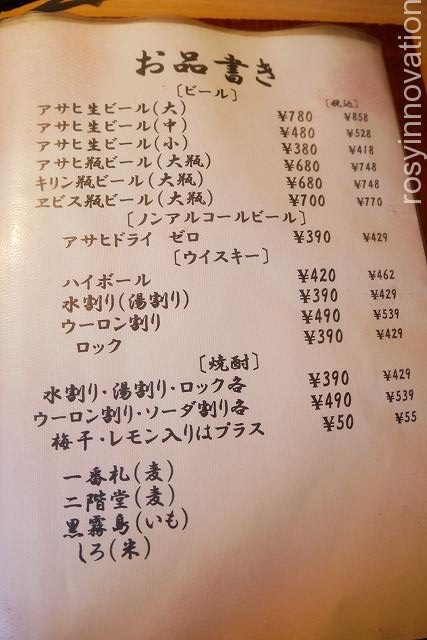 お品書き
[ビール]
[税込]
アサヒ生ビール(大) ¥780 ¥858
アサヒ生ビール(中) ¥480 ¥528
アサヒ生ビール(小) ¥380 ¥418
アサヒ瓶ビール(大瓶) ¥680 ¥748
キリン瓶ビール(大瓶) ¥680 ¥748
ヱビス瓶ビール(大瓶) ¥700 ¥770
[ノンアルコールビール]
アサヒドライ ゼロ ¥390 ¥429
[ウイスキー]
ハイボール ¥420 ¥462
水割り(湯割り) ¥390 ¥429
ウーロン割り ¥490 ¥539
ロック ¥390 ¥429
[焼酎]
水割り・湯割り・ロック各 ¥390 ¥429
ウーロン割り・ソーダ割り各 ¥490 ¥539
梅干・レモン入りはプラス ¥50 ¥55
一番札(麦)
二階堂(麦)
黒霧島(いも)
しろ(米)
rosyinnovation